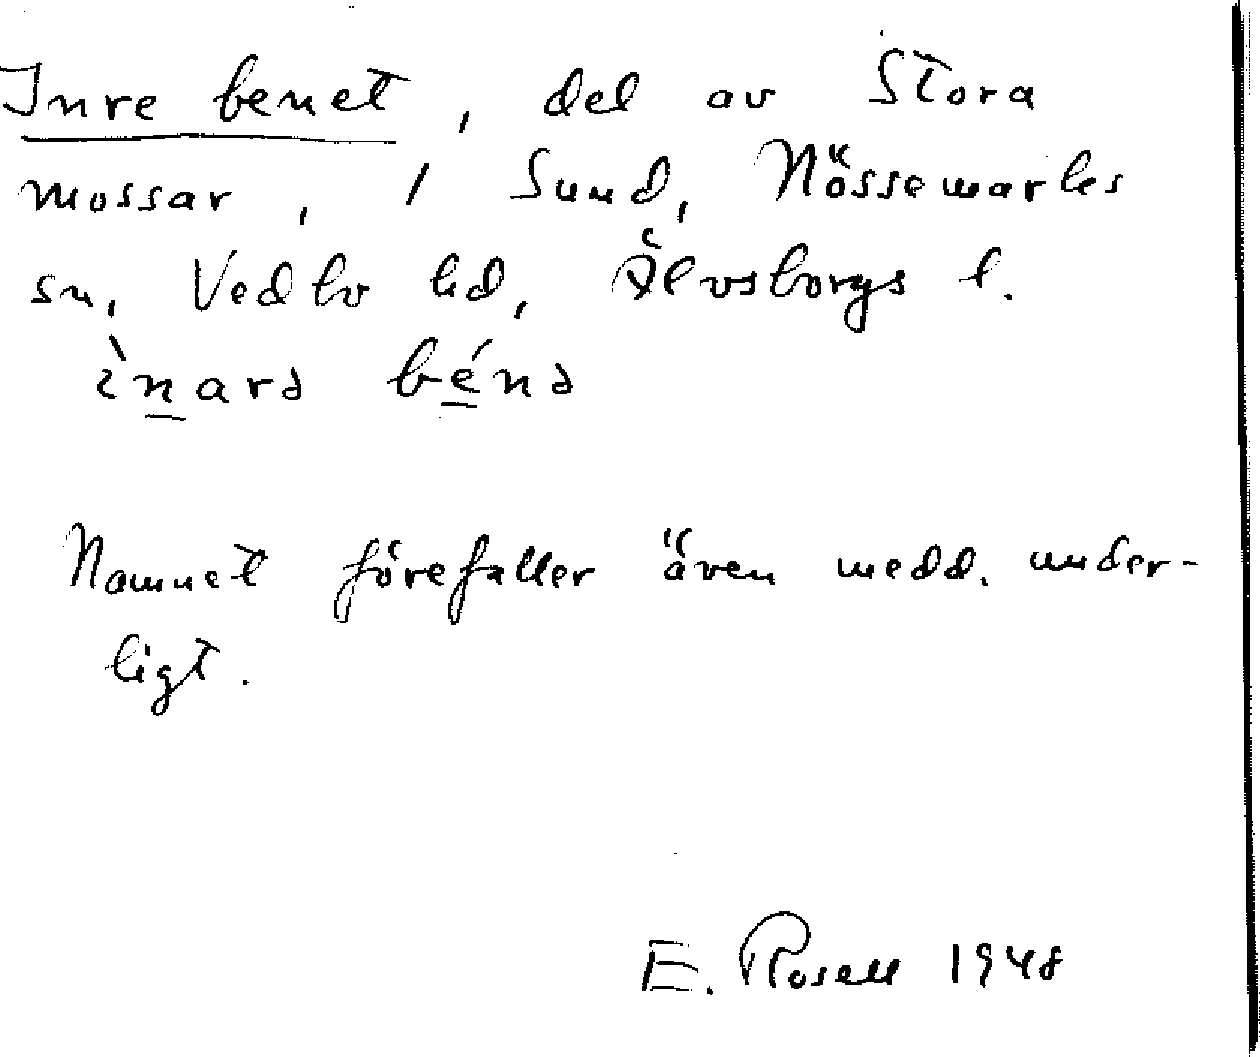 Inre benet, del av Stora
mossar, 1 Sund, Nössemarks
sn, Vedbo hd, Älvsborgs l.
ìnarə bénə
Namnet förefaller även medd. under-
ligt.
E. Rosell 1948